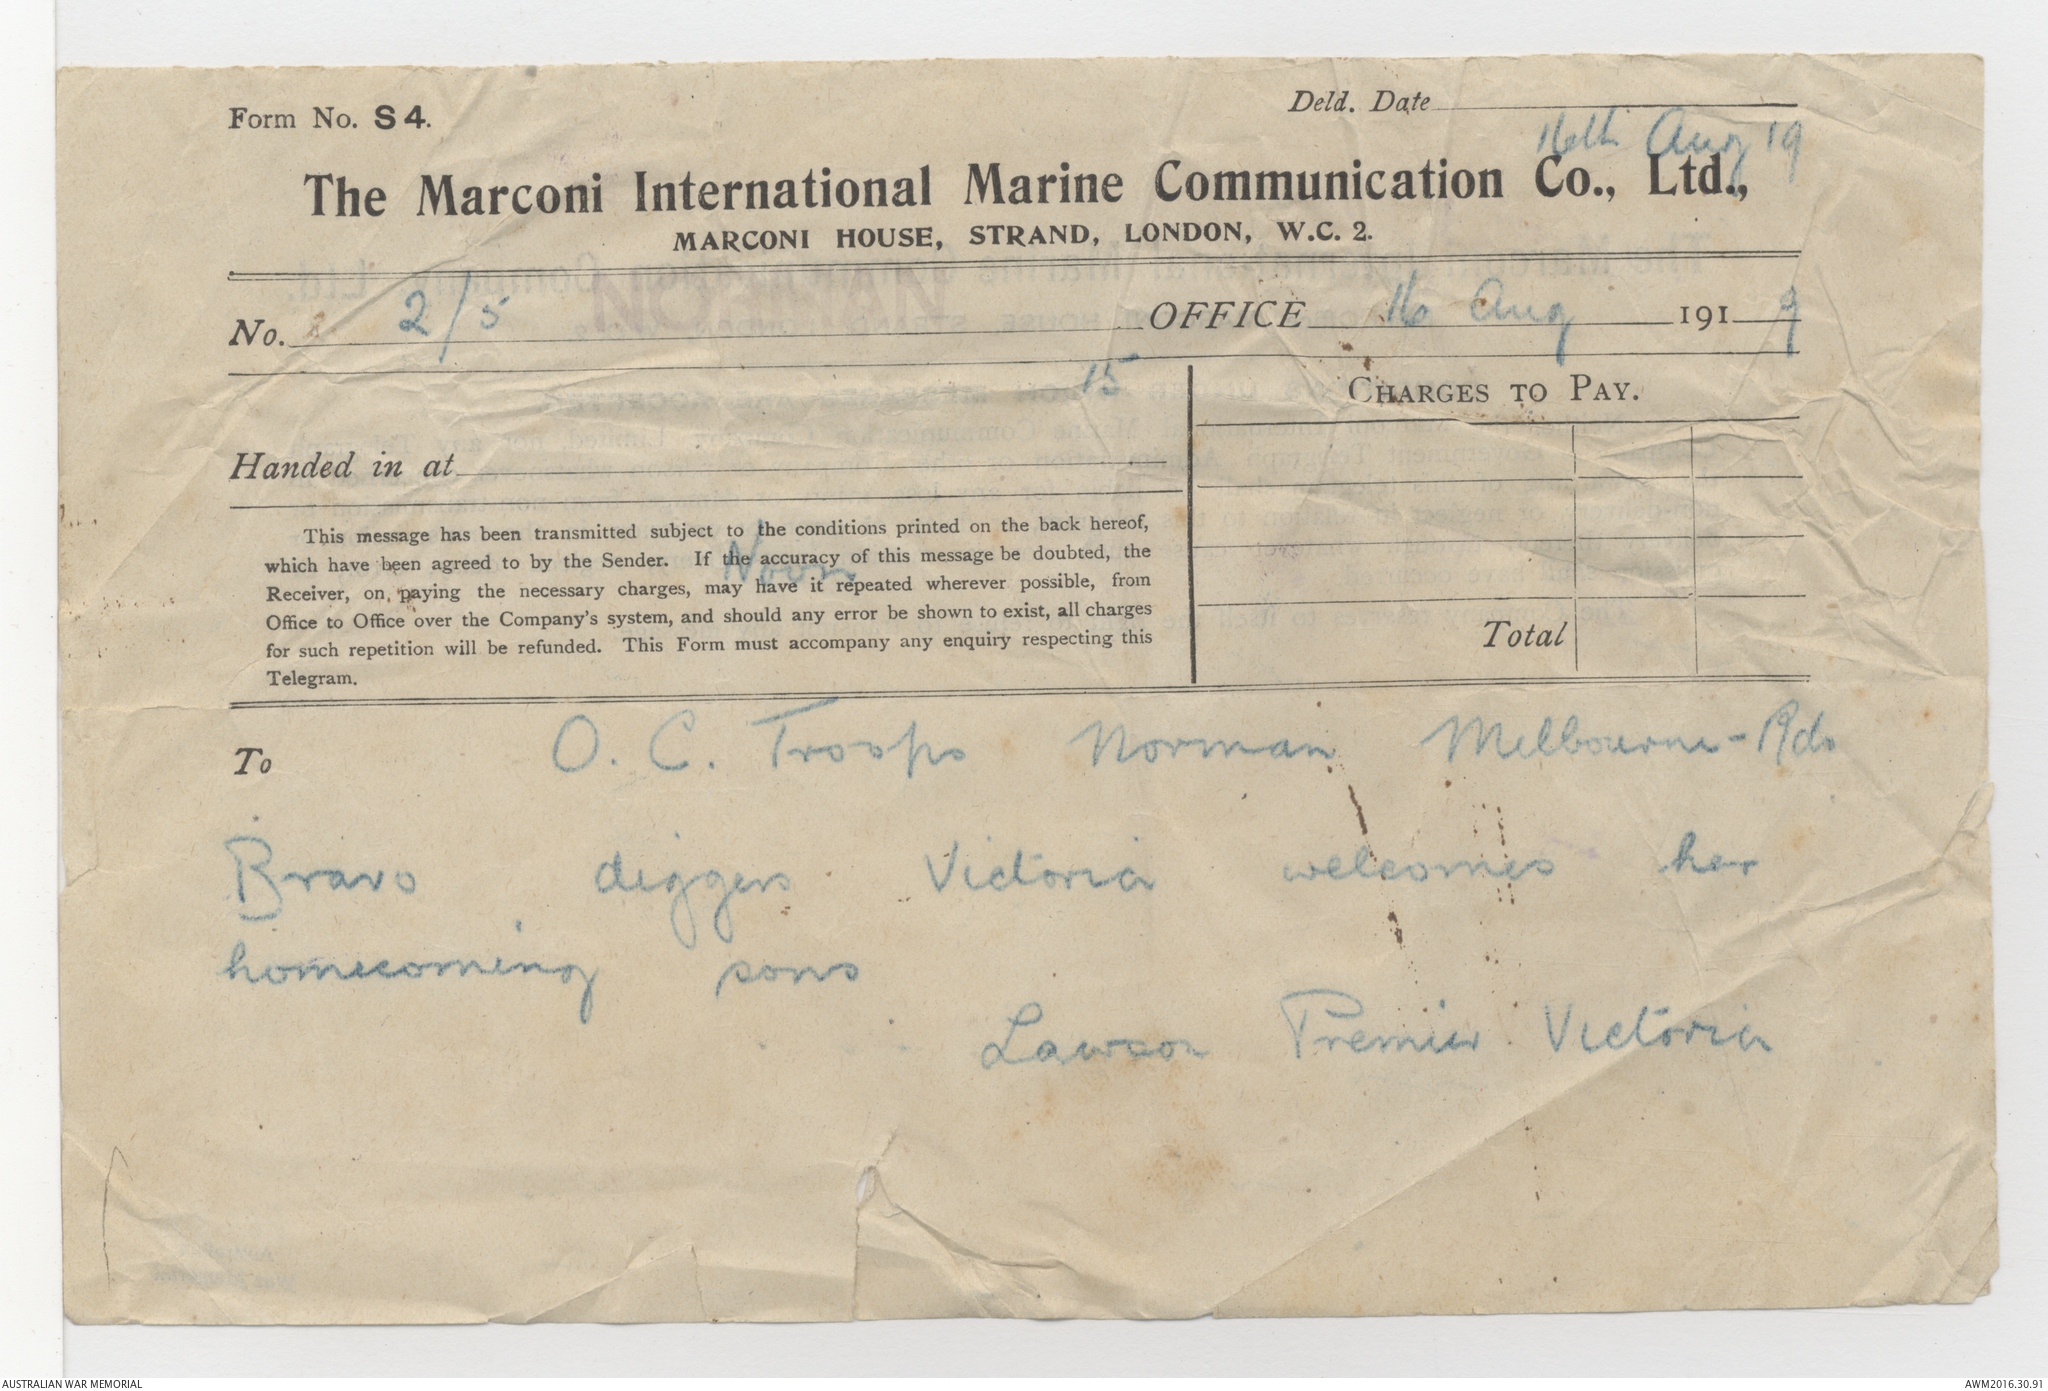 Form No. S 4.
Deld. Date
16th Aug 19
The Marconi International Marine Communication Co., Ltd.,
MARCONI HOUSE, STRAND, LONDON, W.C. 2.
No. 2/5 OFFICE 16 Aug 1919
15
CHARGES TO PAY.
Handed in at
Noon
This message has been transmitted subject to the conditions printed on the back hereof,
which have been agreed to by the Sender. If the accuracy of this message be doubted, the
Receiver, on paying the necessary charges, may have it repeated wherever possible, from
Office to Office over the Company's system, and should any error be shown to exist, all charges
for such repetition will be refunded. This Form must accompany any enquiry respecting this
Telegram.
Total
To O. C. Troops Norman Melbourne-Rdo
Bravo diggers Victoria welcomes her
homecoming sons
Lawson Premier Victoria
AUSTRALIAN WAR MEMORIAL
AWM2016.30.91